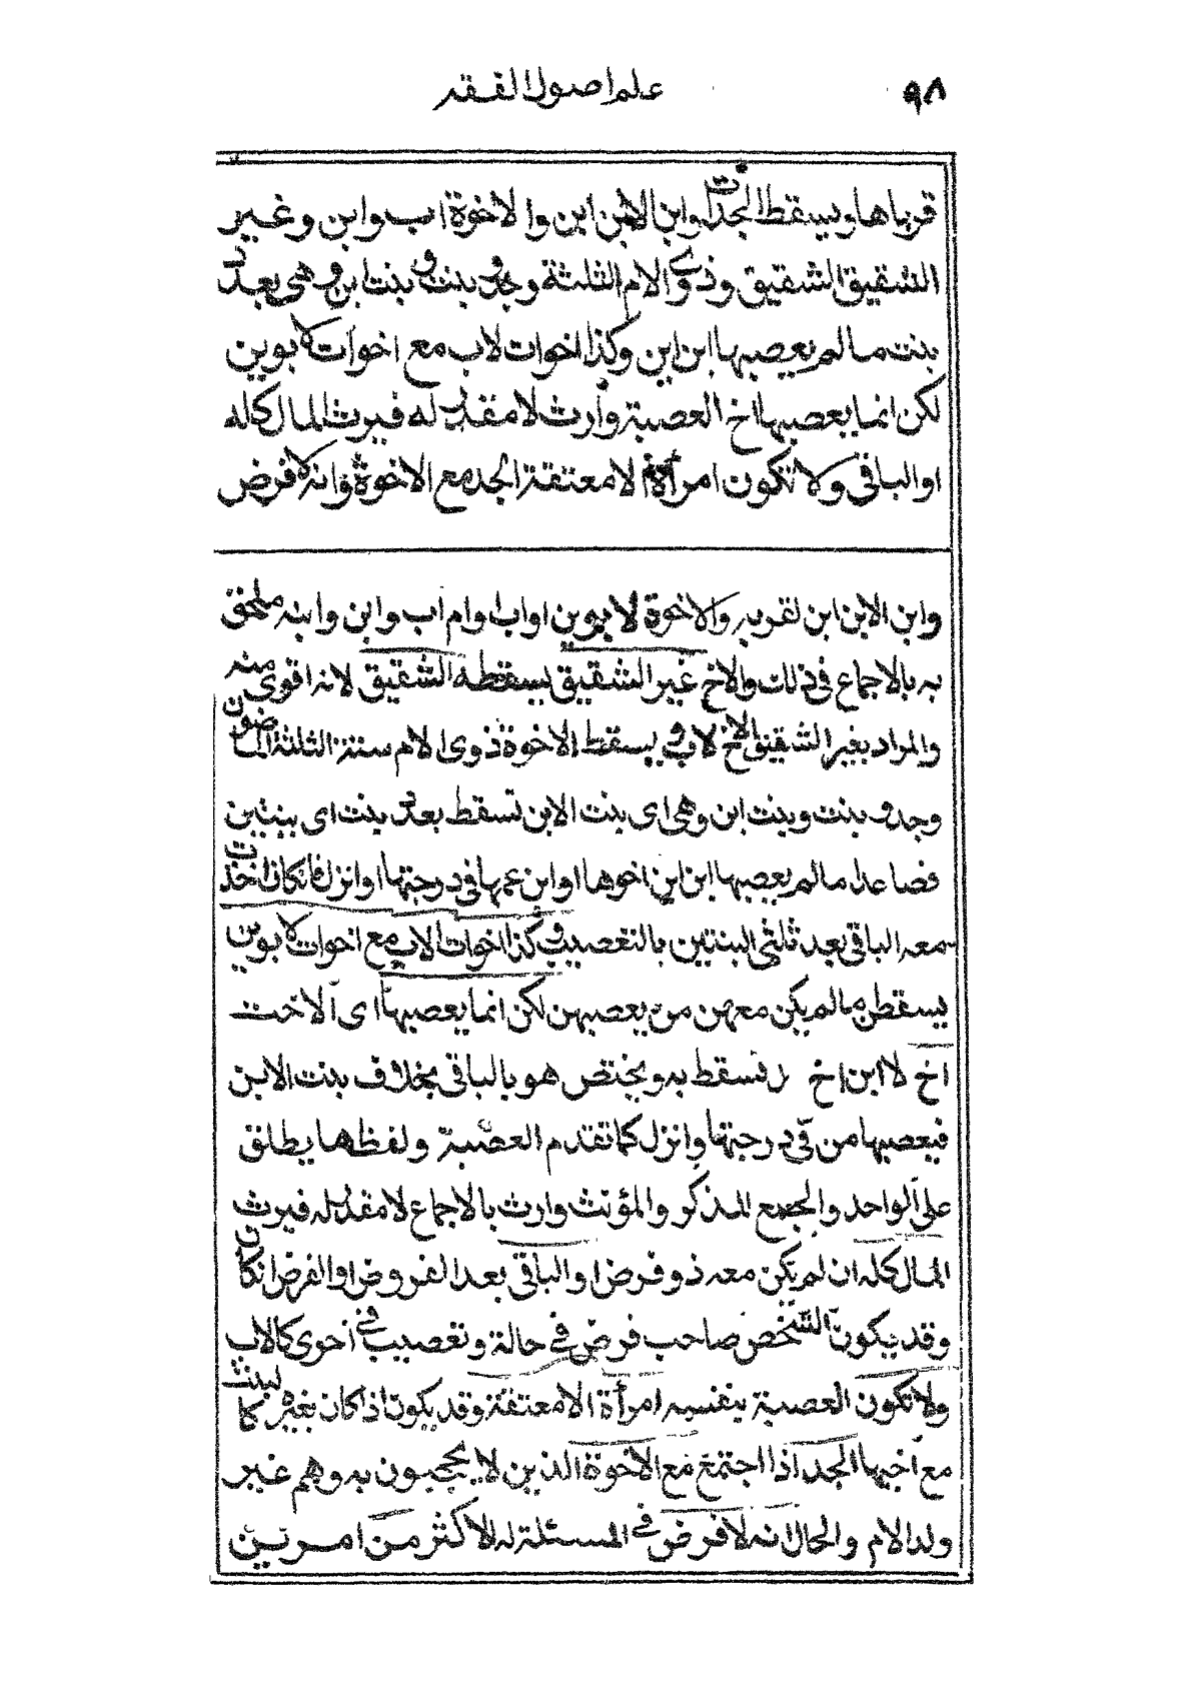 ٩٨
علم اصول الفقه
قرباها ويسقط الجد ت وابن الابن ابن والاخوة اب وابن وغير
الشقيق الشقيق وذوى الام الثلثة وجد وبنت وبنت ابن وهى بعد
بنت ما لم يعصبها ابن ابن وكذا اخوات لاب مع اخوات لابوين
لكن انما يعصبها اخ العصبة وارث لا مقدر له فيرث المال كله
او الباقى ولا تكون امرأة الا معتقة الجد مع الاخوة وانه لا فرض
وابن الابن ابن لقربه والاخوة لابوين او اب او ام اب وابن وابنه ملحق
به بالاجماع فى ذلك والاخ غير الشقيق يسقطه الشقيق لانه اقوى منه
والمراد بغير الشقيق الاخ لاب ويسقط الاخوة ذوى الام ستة الثلثة الماضون
وجد و بنت وبنت ابن وهى اى بنت الابن تسقط بعد بنت اى بنتين
فصاعدا ما لم يعصبها ابن ابن اخوها او ابن عمها فى درجتها او انزل فان كان اخذت
معه الباقى بعد ثلثى البنتين بالتعصيب وكذا اخوات لاب مع اخوات لابوين
يسقطن ما لم يكن معهن من يعصبهن لكن انما يعصبها اى الاخت
اخ لا ابن اخ فتسقط به ويختص هو بالباقى بخلاف بنت الابن
فيعصبها من فى درجتها وانزل كما تقدم العصبة ولفظها يطلق
على الواحد والجمع المذكر والمؤنث وارث بالاجماع لا مقدر له فيرث
المال كله ان لم يكن معه ذو فرض او الباقى بعد الفروض او الفرض ان كان
وقد يكون الشخص صاحب فرض فى حالة وتعصيب فى اخرى كالاب
ولا تكون العصبة بنفسه امرأة الا معتقة وقد يكون اذا كان بغيره كالبنت
مع اخيها الجد اذا اجتمع مع الاخوة الذين لا يحجبون به وهم غير
ولد الام والحال انه لا فرض فى المسئلة له الاكثر من امرين